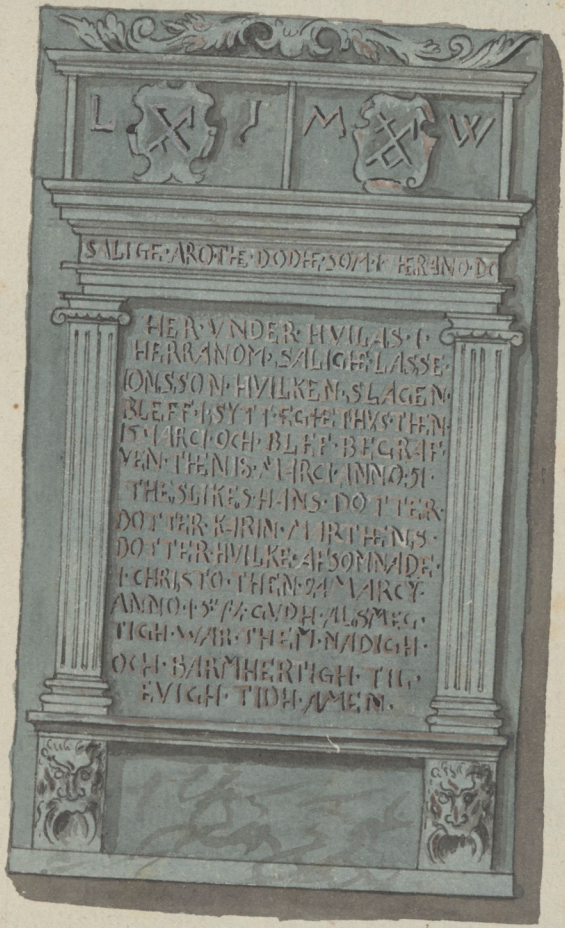 L I M W
SALIGE·ARO·THE·DODHE·SOM·I·HERANO·DO
HER·VNDER·HVILAS·I·
HERRANOM·SALIGH·LASSE·
IONSSON·HVILKEN·SLAGEN·
BLEFF·I·SYTT·EGHET·HVS·THEN·
15·MARCI·OCH·BLEF·BEGRAF
VEN·THEN·18·MARCI·ANNO·51·
THESLIKES·HANS·DOTTER·
DOTTER·KARIN·MARTHENS·
DOTTER·HVILKE·AFSOMNADE·
I·CHRISTO·THEN·24·MARCY·
ANNO GVDH·ALSMEC·
TIGH·WAR·THEM·NADIGH·
OCH·BARMHERTIGH·TIL·
EVIGH·TIDH·AMEN·